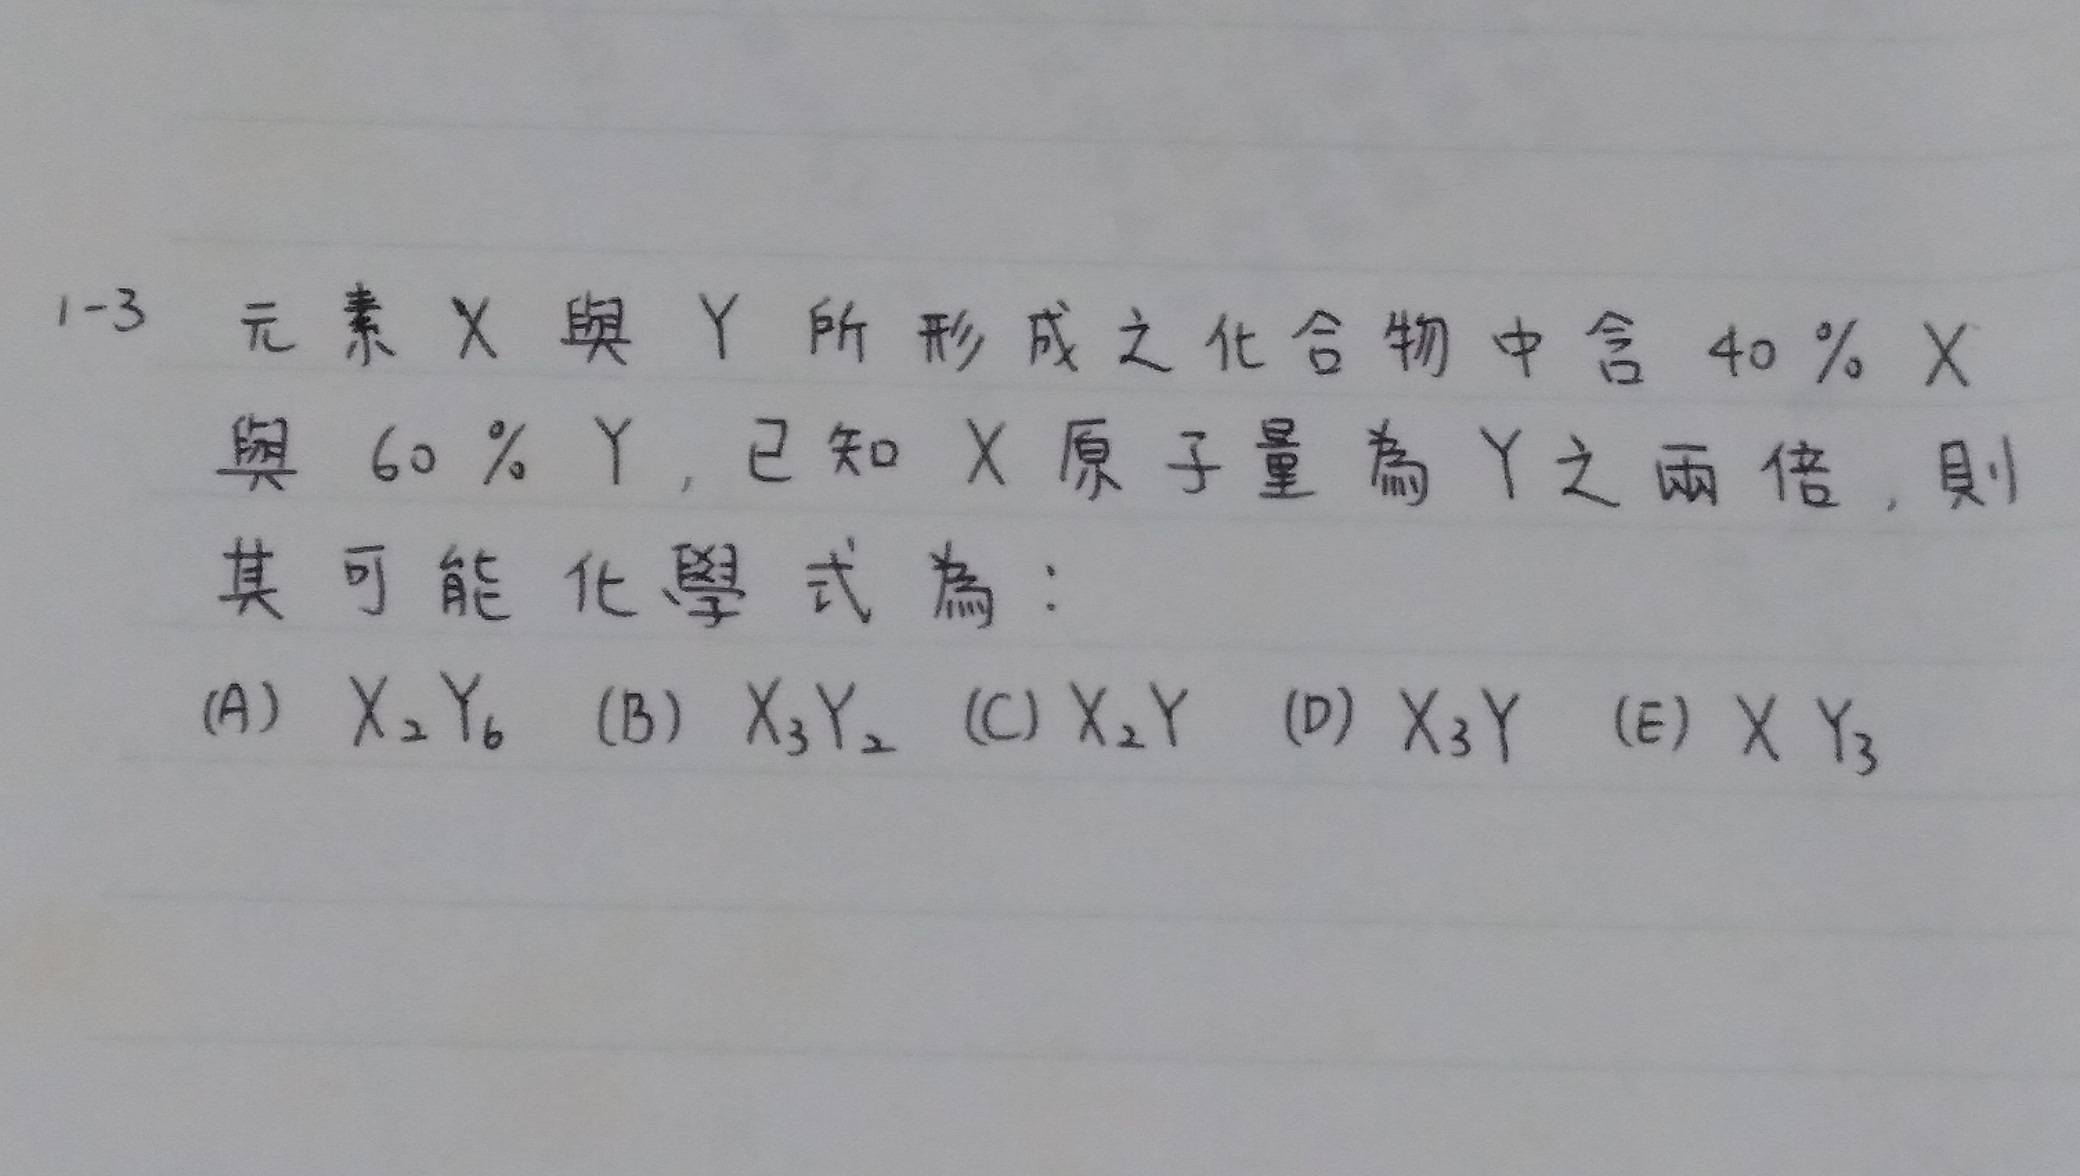 1-3 元素 X 與 Y 所形成之化合物中含 40% X
與 60% Y, 已知 X 原子量為 Y 之兩倍, 則
其可能化學式為:
(A) X₂Y₆ (B) X₃Y₂ (C) X₂Y (D) X₃Y (E) XY₃